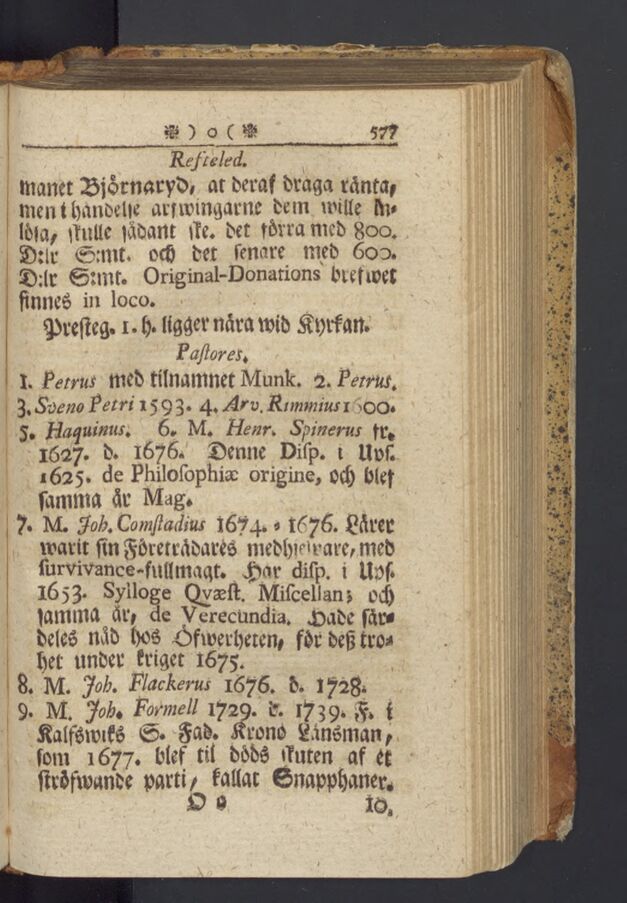 ❉ ) o ( ❉ 577
Refteled.
manet Björnaryd, at deraf draga ränta,
men i händelse arfwingarne dem wille in-
lösa, skulle sådant ske. det förra med 800.
D:lr S:mt. och det senare med 600.
D:lr S:mt. Original-Donations brefwet
finnes in loco.
Presteg. 1. h. ligger nära wid Kyrkan.
Pastores.
1. Petrus med tilnamnet Munk. 2. Petrus.
3. Sveno Petri 1593. 4. Arv. Rimmius 1600.
5. Haquinus. 6. M. Henr. Spinerus fr.
1627. d. 1676. Denne Disp. i Ups.
1625. de Philosophiæ origine, och blef
samma år Mag.
7. M. Joh. Comstadius 1674. = 1676. Lärer
warit sin Företrädares medhjelpare, med
survivance-fullmagt. Har disp. i Ups.
1653. Sylloge Qvæst. Miscellan; och
samma år, de Verecundia. Hade sär-
deles nåd hos Öfwerheten, för deß tro-
het under kriget 1675.
8. M. Joh. Flackerus 1676. d. 1728.
9. M. Joh. Formell 1729. d. 1739. F. i
Kalfswiks S. Fad. Krono Länsman,
som 1677. blef til döds skuten af et
ströfwande parti, kallat Snapphaner.
O o 10.